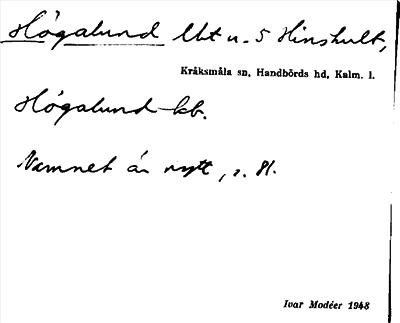 Högalund lht u. 5 Hinshult,
Kråksmåla sn, Handbörds hd, Kalm. l.
Högalund kb.
Namnet är nytt, s. 81.
Ivar Modéer 1948